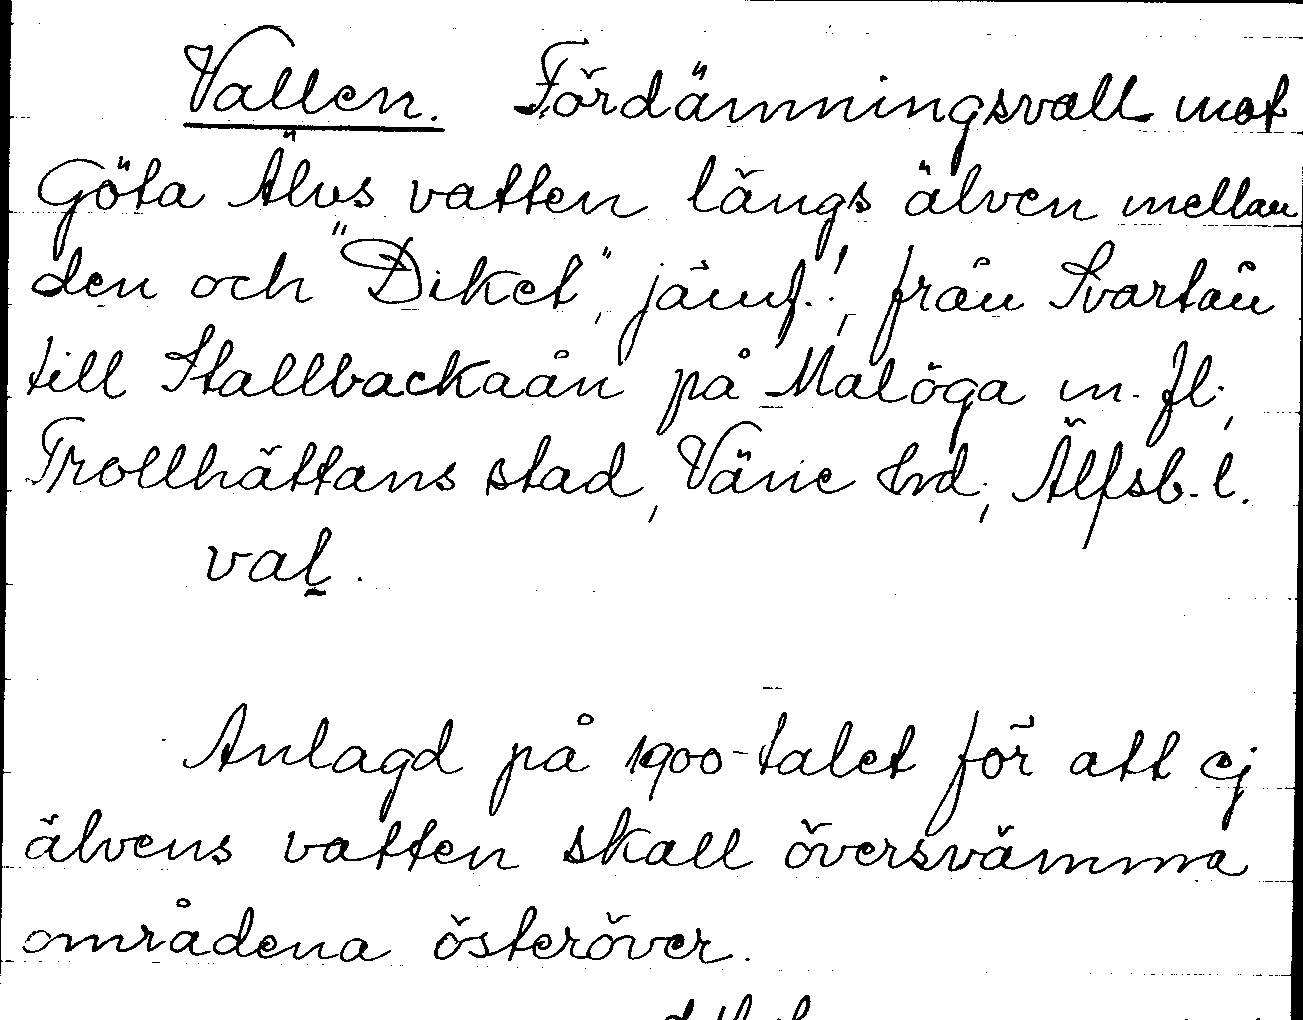 Vallen. Fördämningsvall mot
Göta Älvs vatten längs älven mellan
den och "Diket", jämf.!, från Svartån
till Stallbackaån på Malöga m. fl.,
Trollhättans stad, Väne hd., Älfsb. l.
val̰.
Anlagd på 1900-talet för att ej
älvens vatten skall översvämma
områdena österöver.